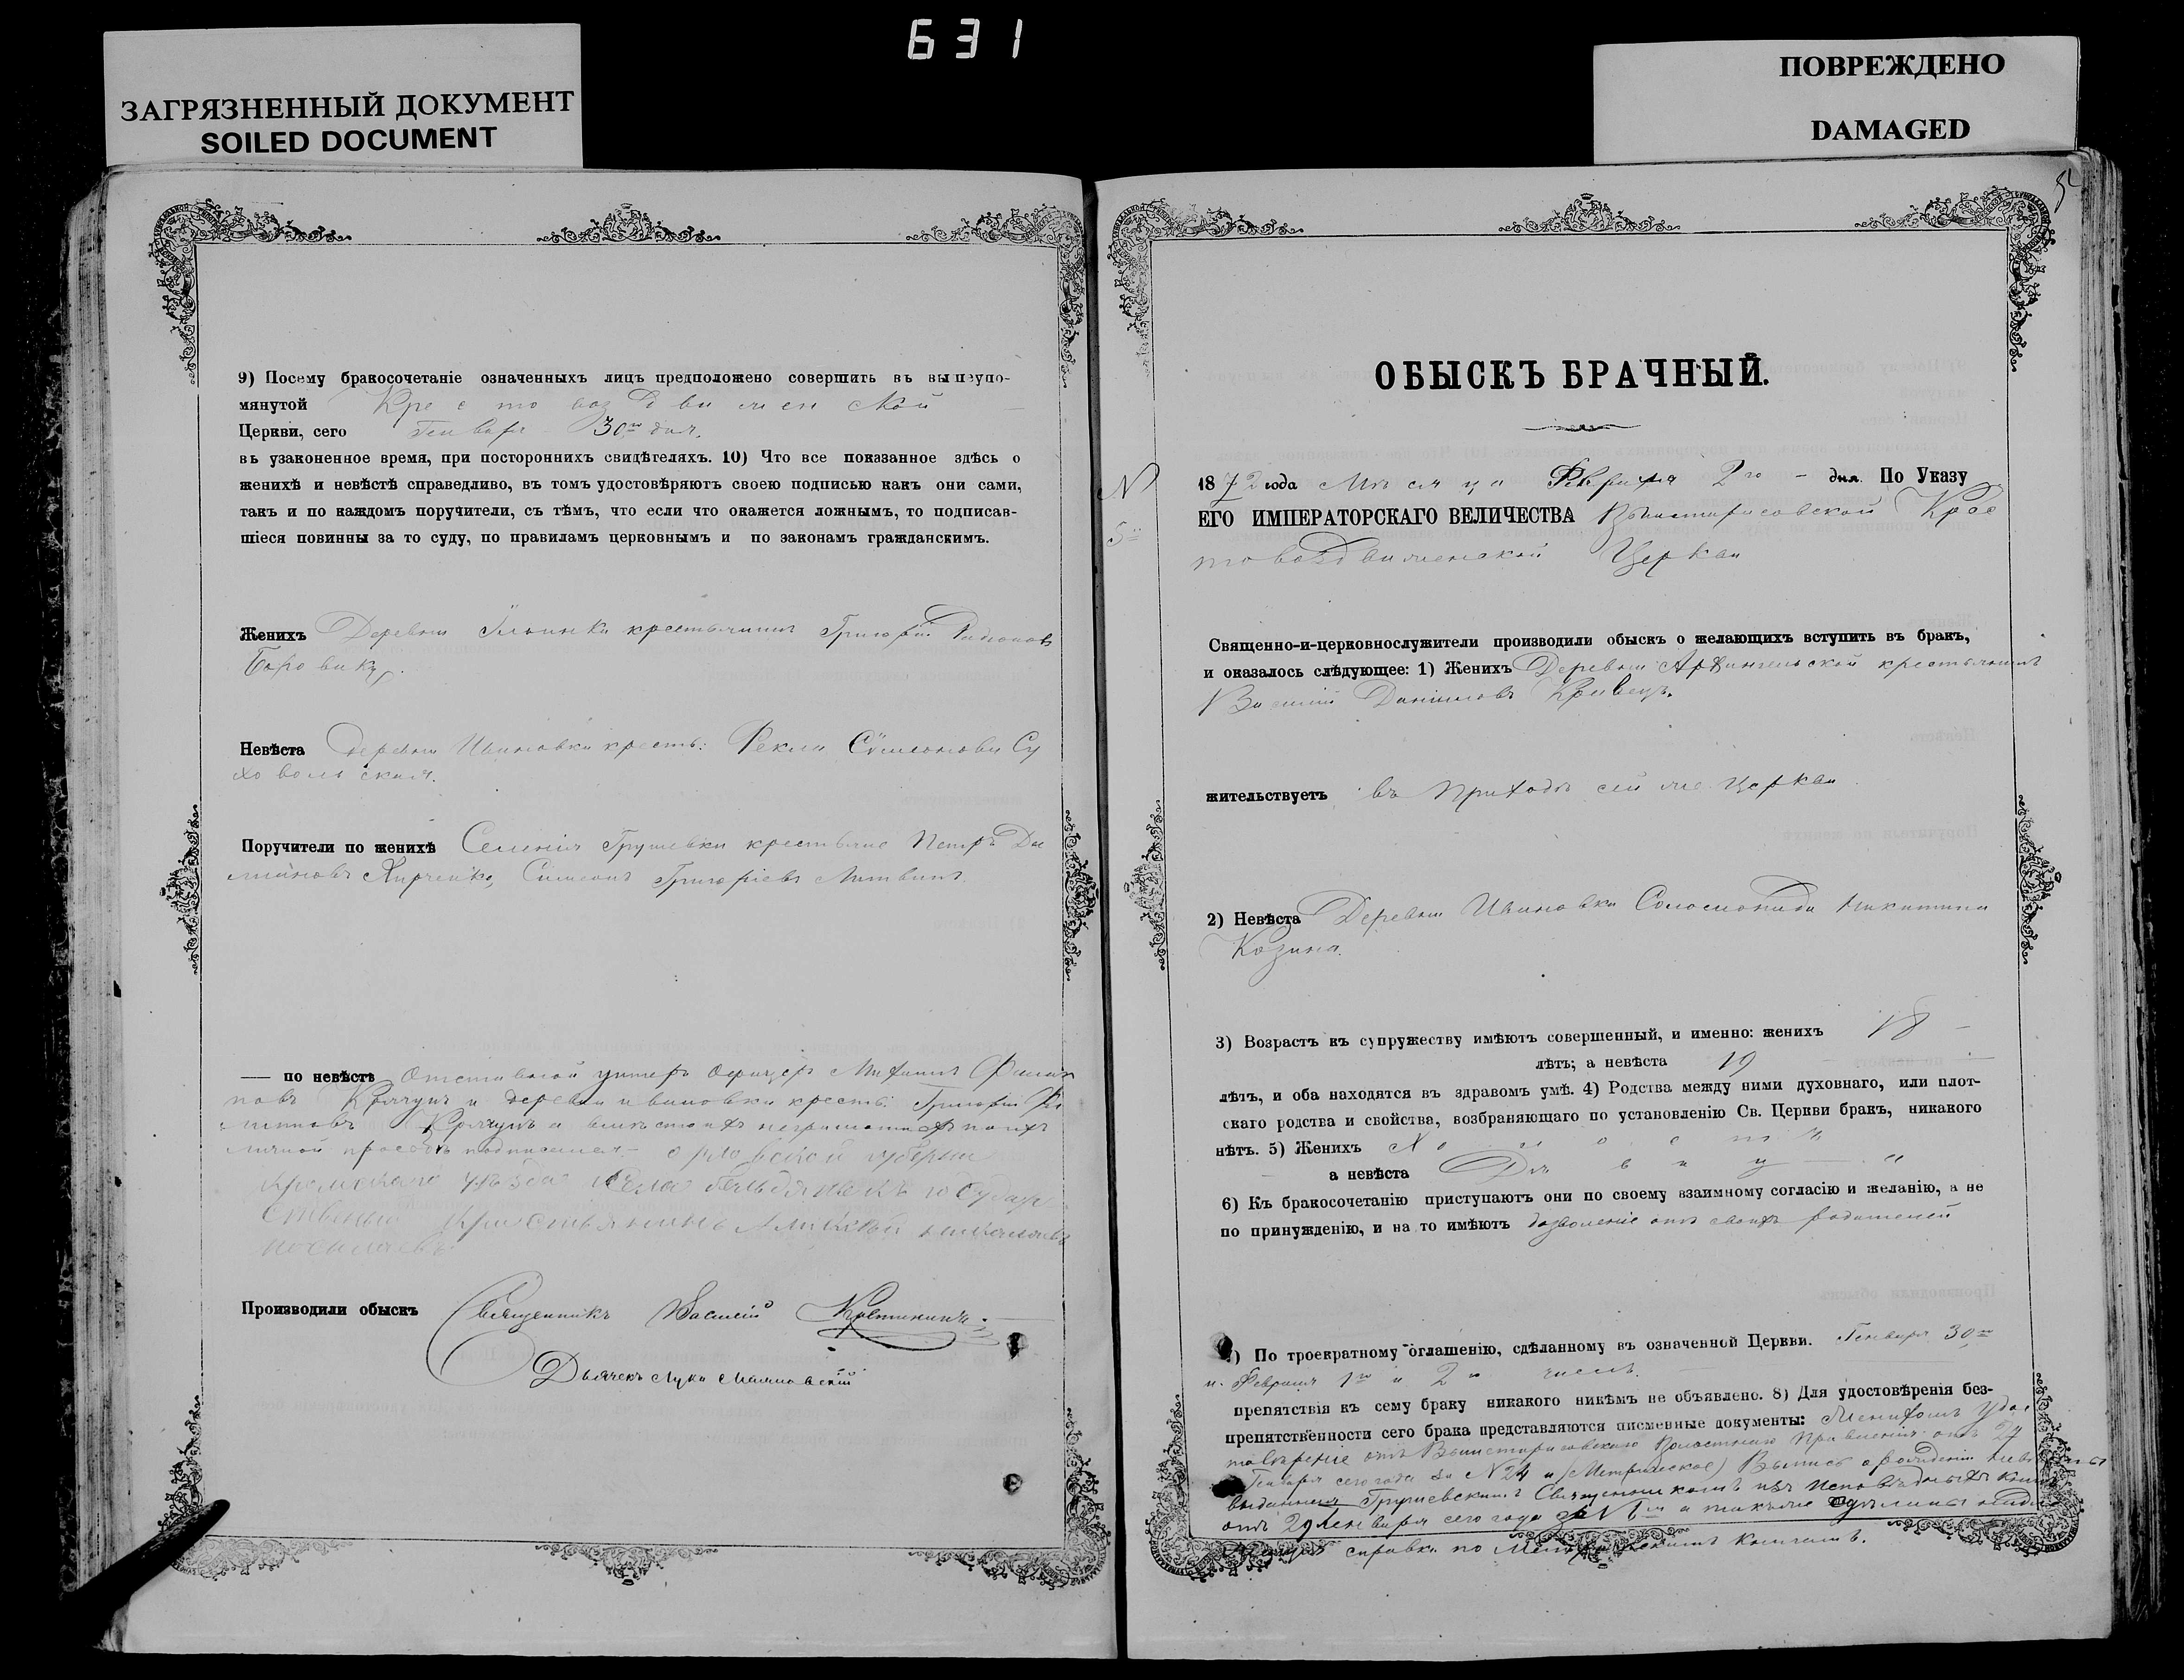 631
ЗАГРЯЗНЕННЫЙ ДОКУМЕНТ
SOILED DOCUMENT
ПОВРЕЖДЕНО
DAMAGED
9) Посему бракосочетаніе означенныхъ лицъ предположено совершить въ вышеупо-
мянутой Крестовоздвиженской
Церкви, сего Генваря 30го дня.
въ узаконенное время, при постороннихъ свидѣтеляхъ. 10) Что все показанное здѣсь о
женихѣ и невѣстѣ справедливо, въ томъ удостовѣряютъ своею подписью какъ они сами,
такъ и по каждомъ поручители, съ тѣмъ, что если что окажется ложнымъ, то подписав-
шіеся повинны за то суду, по правиламъ церковнымъ и по законамъ гражданскимъ.
Женихъ Деревни крестьянинъ Григорій Родіоновъ
Невѣста деревни Ивановки кресть: Фекла Сѵмеонова Су
ховольская.
Поручители по женихѣ Селенія Грушевки крестьяне Петръ Да
міановъ Симеонъ Григоріевъ Литвинъ
— по невѣстѣ Отставной унтеръ офицеръ Михаилъ Филип
повъ Крячунъ и деревни Ивановки кресть: Григорій Фи
липповъ Крячунъ а вмѣсто ихъ неграмотныхъ по ихъ
личной прозьбѣ подписался — орловской губерніи
кромскаго уѣзда села государ
ственый крестьянинъ
Производили обыскъ Священникъ Василій
Дьячекъ Лука
ОБЫСКЪ БРАЧНЫЙ.
№ 1872 года Мѣсяца Февраля 2го — дня. По Указу
5й ЕГО ИМПЕРАТОРСКАГО ВЕЛИЧЕСТВА Крес
товоздвиженской Церкви
Священно-и-церковнослужители производили обыскъ о желающихъ вступить въ бракъ,
и оказалось слѣдующее: 1) Женихъ Деревни Архангельской крестьянинъ
Василій Даніиловъ Кривецъ.
жительствуетъ въ приходѣ сей же церкви
2) Невѣста Деревни Ивановки Соломонида Никитина
Козина.
3) Возрастъ къ супружеству имѣютъ совершенный, и именно: женихъ 18 —
лѣтъ; а невѣста 19
лѣтъ, и оба находятся въ здравомъ умѣ. 4) Родства между ними духовнаго, или плот-
скаго родства и свойства, возбраняющаго по установленію Св. Церкви бракъ, никакого
нѣтъ. 5) Женихъ Холостъ
а невѣста Двица
6) Къ бракосочетанію приступаютъ они по своему взаимному согласію и желанію, а не
по принужденію, и на то имѣютъ дозволеніе отъ своихъ родителей
) По троекратному оглашенію, сдѣланному въ означенной Церкви. Генваря 30го
и Февраля 1го и 2го числъ.
препятствія къ сему браку никакого никѣмъ не объявлено. 8) Для удостовѣренія без-
препятственности сего брака представляются писменные документы: Женихомъ удос
товѣреніе отъ Волостнаго Правленія отъ 27
Генваря сего года за №24 и (Метрическое) Выпись о рожденіи невѣсты
выданная Грушевскимъ Священникомъ изъ исповѣдныхъ книгъ
отъ 29 Генваря сего года за № а также
справки по Метрическимъ книгамъ.